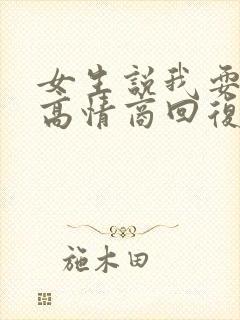 女生説我要
高情商回復
施木田